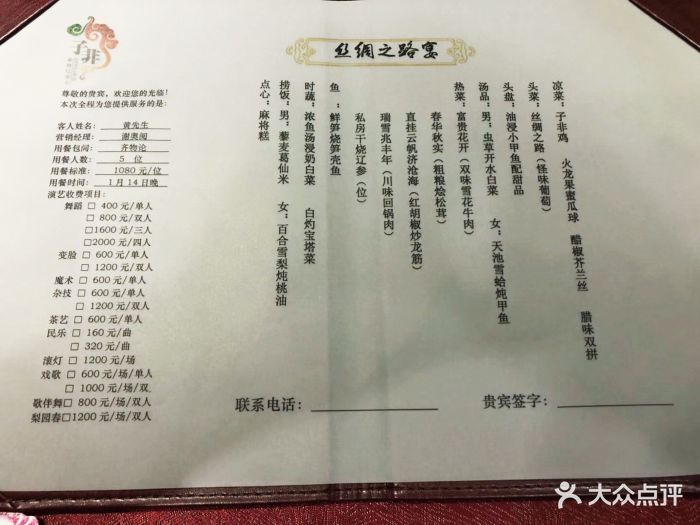 子非
丝绸之路宴
尊敬的贵宾，欢迎您的光临！
本次全程为您提供服务的是：
客人姓名：黄先生
营销经理：谢奥阅
用餐包间：齐物论
用餐人数：5 位
用餐标准：1080元/位
用餐时间：1月14日晚
演艺收费项目：
舞蹈 □ 400元/单人
□ 800元/双人
□1600元/三人
□2000元/四人
变脸 □ 600元/单人
□ 1200元/双人
魔术 □ 600元/单人
杂技 □ 600元/单人
□ 1200元/双人
茶艺 □ 600元/单人
民乐 □ 160元/曲
□ 320元/曲
滚灯 □ 1200元/场
戏歌 □ 600元/场/单人
□ 1000元/场/双
歌伴舞□ 800元/场/双人
梨园春□1200元/场/双人
凉菜：子非鸡 火龙果蜜瓜球 醋椒芥兰丝 腊味双拼
头菜：丝绸之路（怪味葡萄）
头盘：油浸小甲鱼配甜品
汤品：男：虫草开水白菜 女：天池雪蛤炖甲鱼
热菜：富贵花开（双味雪花牛肉）
春华秋实（粗粮烩松茸）
直挂云帆济沧海（红胡椒炒龙筋）
瑞雪兆丰年（川味回锅肉）
私房干烧辽参（位）
鱼：鲜笋烧笋壳鱼
时蔬：浓鱼汤浸奶白菜 白灼宝塔菜
捞饭：男：藜麦葛仙米 女：百合雪梨炖桃油
点心：麻将糕
联系电话：
贵宾签字：
大众点评